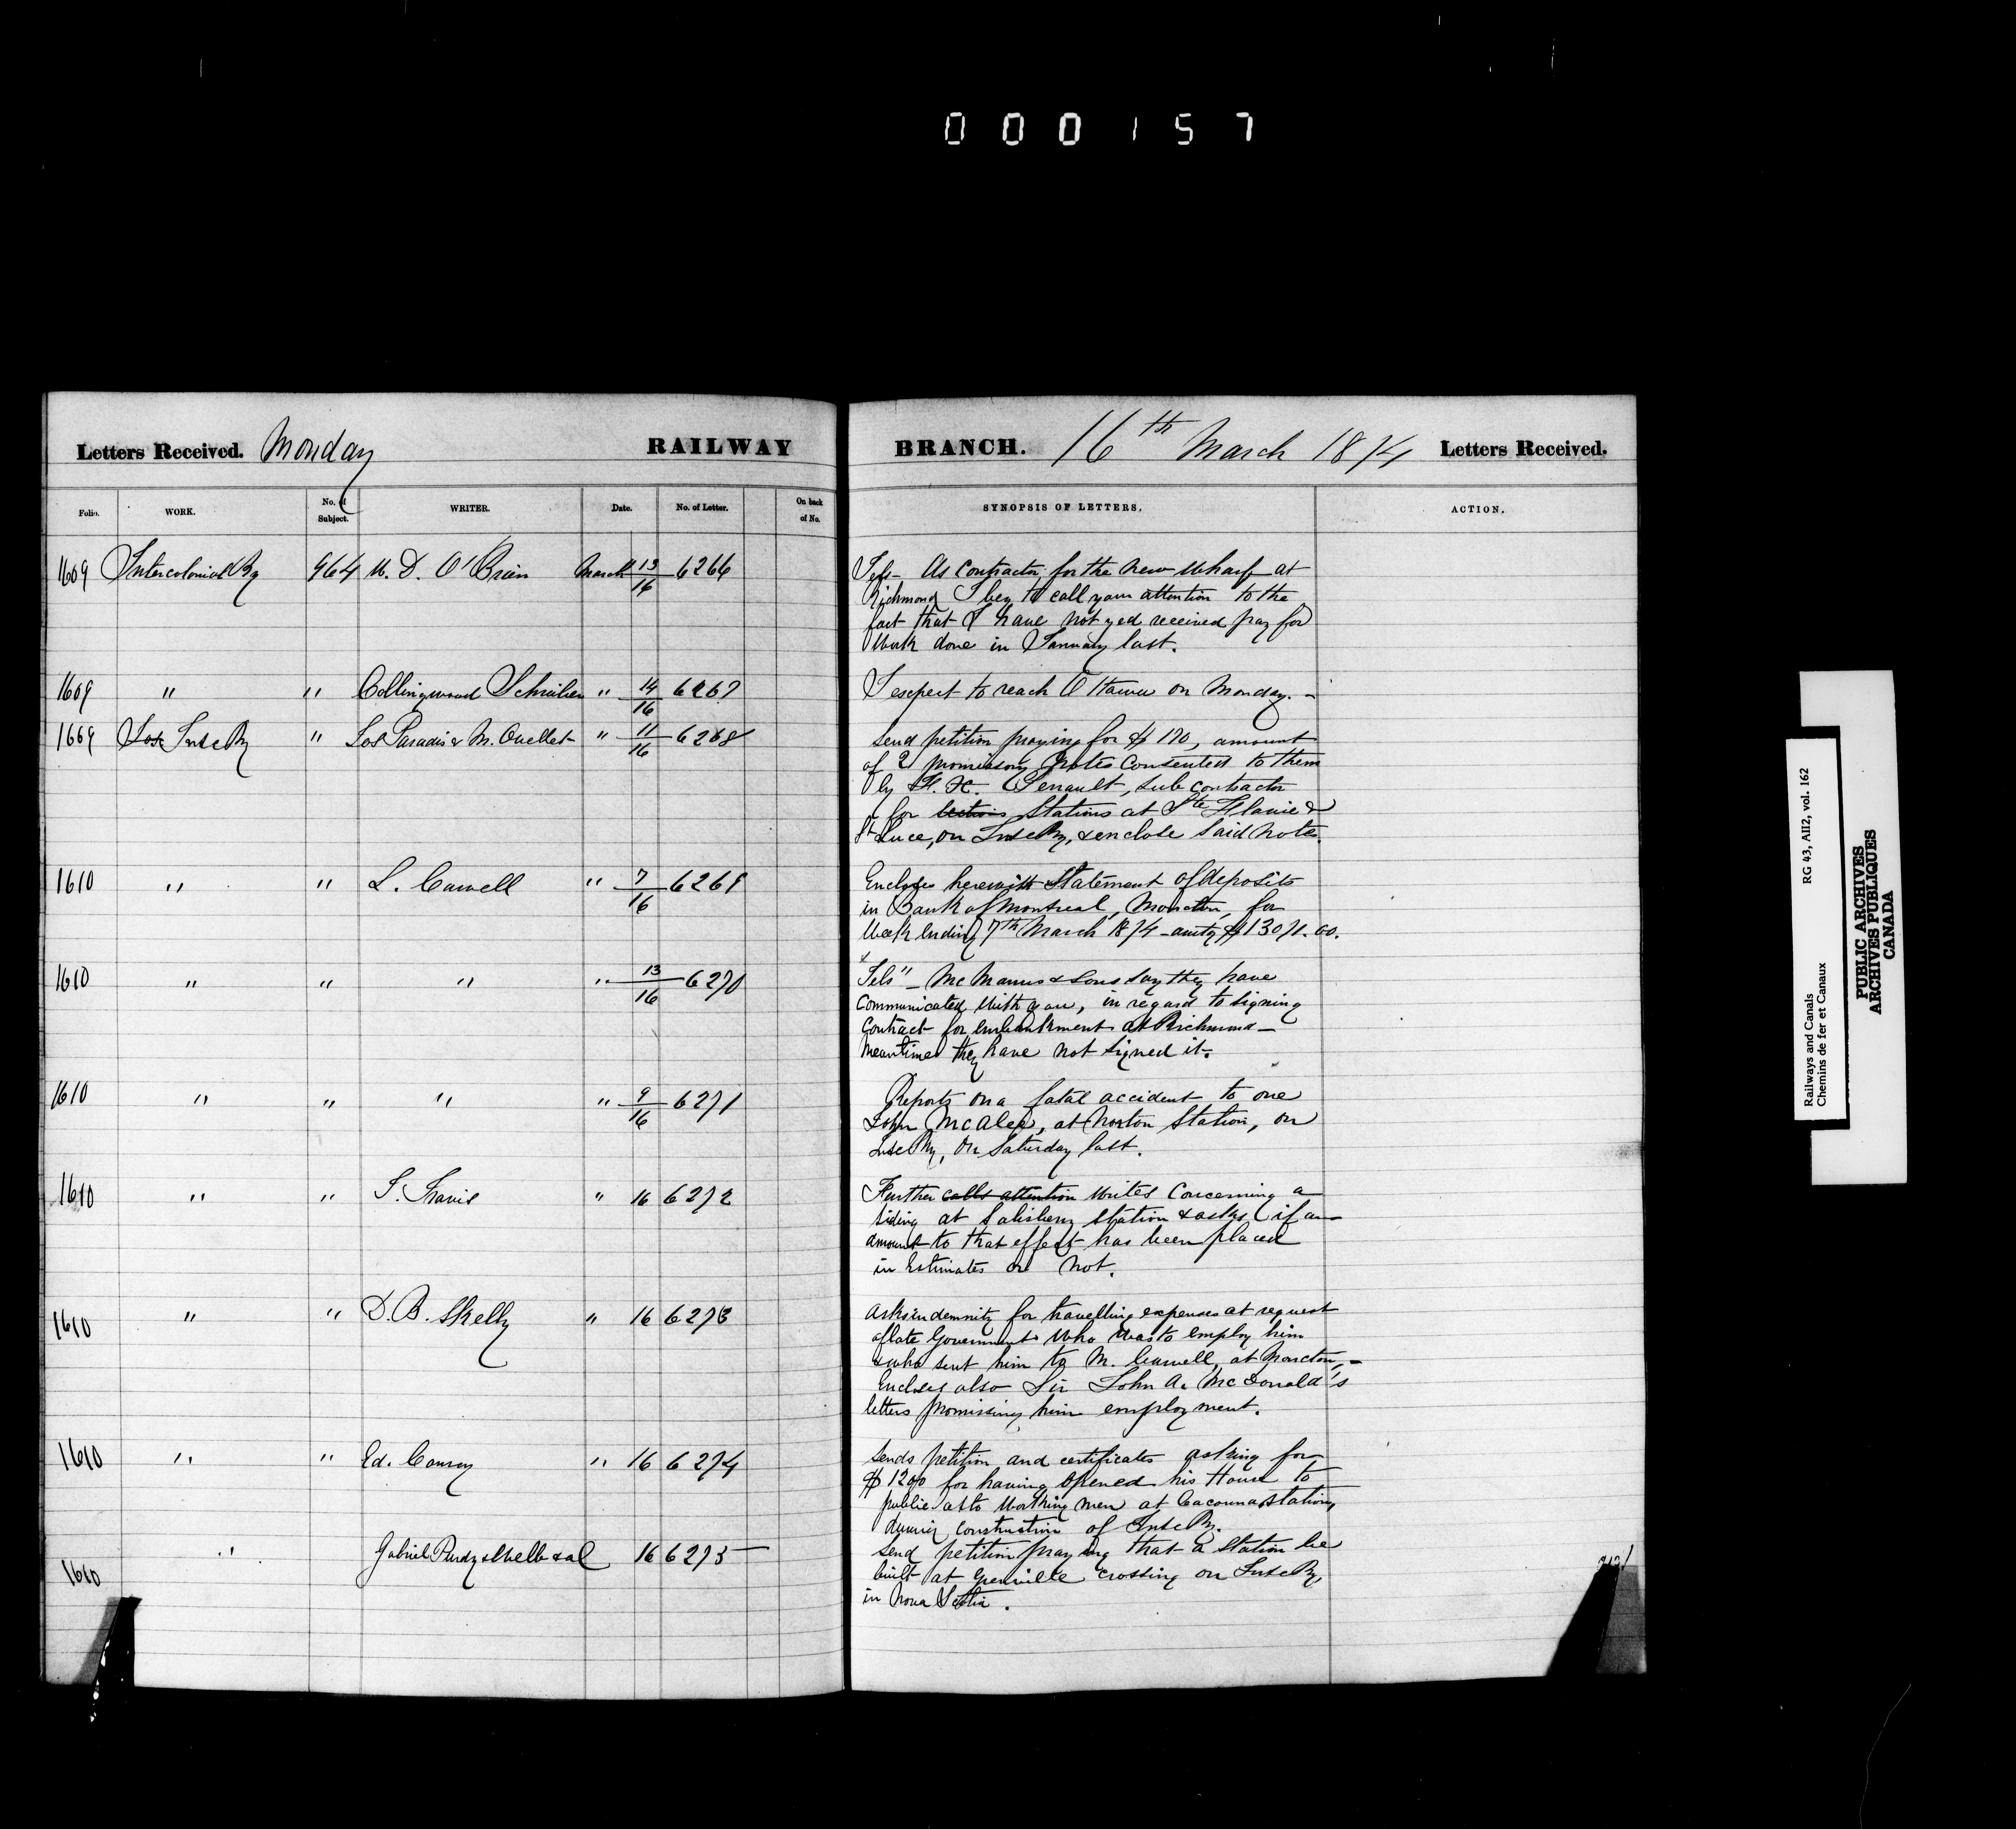 000157
Letters Received. Monday RAILWAY BRANCH. 16th March 1874 Letters Received.
Folio. WORK. No. of Subject. WRITER. Date. No. of Letter. On back of No. SYNOPSIS OF LETTERS. ACTION.
1609 Intercolonial Ry 964 M. D. O'Brien March 13/16 6266 Tel- As contractor for the new wharf at
Richmond I beg to call your attention to the
fact that I have not yed received pay for
Work done in January last.
1609 " " Collingwood Schreiber " 14/16 6267 I expect to reach Ottawa on Monday. -
1669 Intc Ry " Jos Paradis & M. Ouellet " 11/16 6268 Send petition praying for $170, amount
of 2 promissory notes consented to them
by F. X. Perrault, sub contractor
for Stations at Ste Flavie &
St Luce, on Intc Ry, & enclose said notes.
1610 " " L. Carvell " 7/16 6269 Encloses herewith Statement of deposits
in Bank of Montreal, Moncton, for
Week ending 7th March 1874 - amtg $1307.00.
1610 " " " " 13/16 6270 "Tels" - McManus & Sons say they have
communicated with you, in regard to signing
Contract for embankment at Richmond -
Meantime they have not signed it.
1610 " " " " 9/16 6271 Reports on a fatal accident to one
John McAleer, at Norton Station, on
Intc Ry, on Saturday last.
1610 " " S. Travis " 16 6272 Further calls attention writes concerning a
siding at Salisbury Station & asks if an
amount to that effect has been placed
in Estimates or not.
1610 " " D. B. Skelly " 16 6273 Asks indemnity for travelling expenses at request
of late Government who was to employ him
& who sent him to M. Carvell, at Moncton, -
Encloses also Sir John A. McDonald's
letters promissing him employment.
1610 " " Ed. Conroy " 16 6274 Sends petition and certificates asking for
$1200 for having opened his House to
public as to working men at Cacouna Station,
during construction of Intc Ry.
1610 " Gabriel Purdy & al 16 6275 Send petition praying that a Station be
built at Grenville crossing on Intc Ry,
in Nova Scotia.
Railways and Canals RG 43, AII2, vol. 162
Chemins de fer et Canaux
PUBLIC ARCHIVES
ARCHIVES PUBLIQUES
CANADA